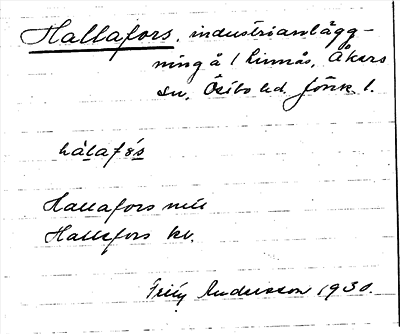 Hallafors, industrianlägg-
ning å 1 Linnås, Åkers
sn, Östbo hd, Jönk. l.
hàlafó̱s̱
Hallafors mek
Hallafors kv.
Andersson 1930.